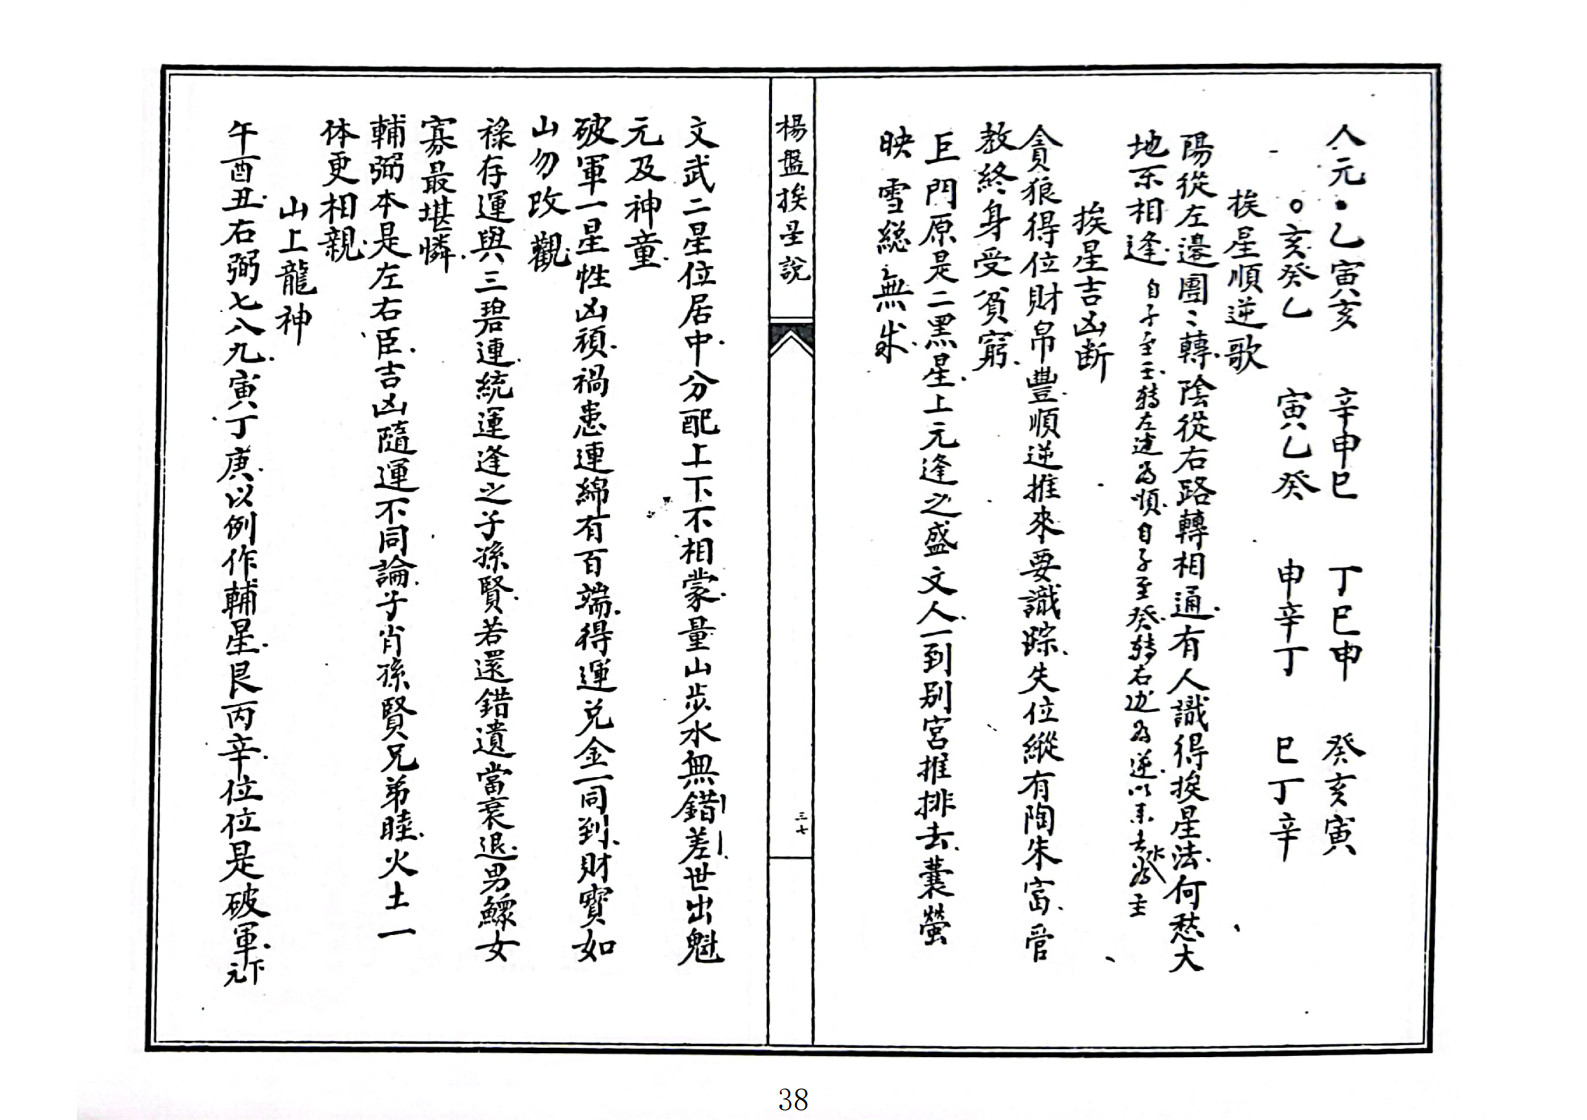 人元·乙寅亥　辛申巳　丁巳申　癸亥寅
○亥癸乙　寅乙癸　申辛丁　巳丁辛
挨星順逆歌
陽從左邊團〻轉陰從右路轉相通有人識得挨星法何愁大
地不相逢 自子至壬轉左边為順自子至癸轉右边為逆以來去水為主
挨星吉凶断
貪狼得位財帛豐順逆推來要識踪失位縱有陶朱富管
教終身受貧窮
巨門原是二黑星上元逢之盛文人一到別宮推排去囊螢
映雪総無成
楊盤挨星說
三七
文武二星位居中分配上下不相蒙量山步水無錯差世出魁
元及神童
破軍一星性凶頑禍患連綿有百端得運兌金一同到財寶如
山勿改觀
祿存運與三碧連統運逢之子孫賢若還錯遺當衰退男鰥女
寡最堪憐
輔弼本是左右臣吉凶隨運不同論子肖孫賢兄弟睦火土一
体更相親
山上龍神
午酉丑右弼七八九寅丁庚以例作輔星艮丙辛位位是破軍下元
38